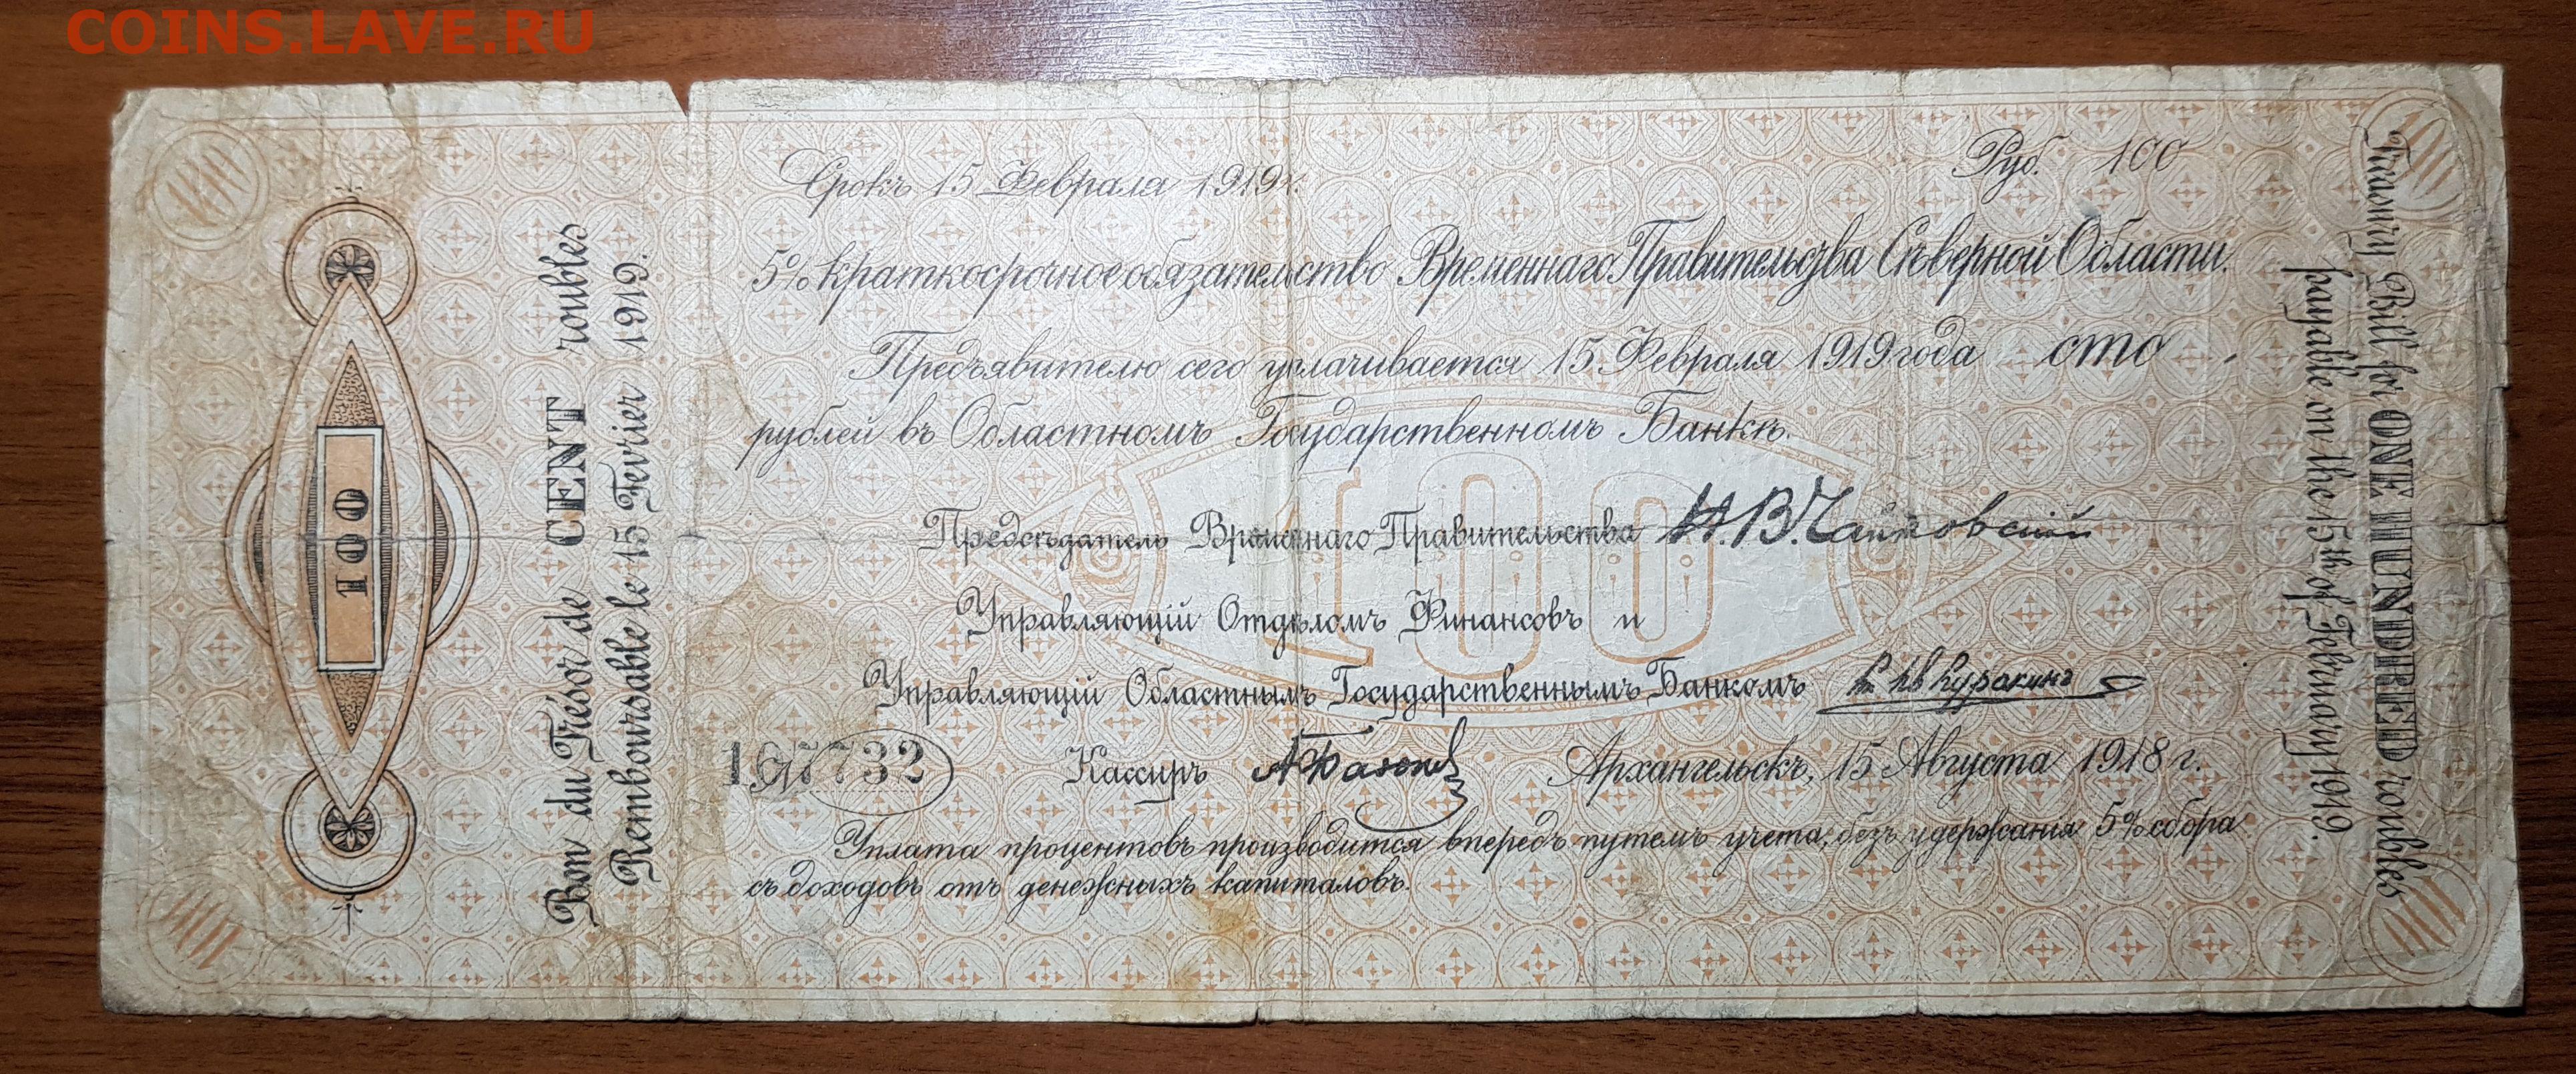 COINS.LAVE.RU
Срокъ 15 Февраля 1919 г.
Руб. 100
5% краткосрочное обязательство Временнаго Правительства Съверной Области.
Предъявителю сего уплачивается 15 Февраля 1919 года сто
рублей въ Областномъ Государственномъ Банкъ.
Предсъдатель Временнаго Правительства Н.В.Чайковскій
Управляющій Отдъломъ Финансовъ и
Управляющій Областнымъ Государственнымъ Банкомъ Куракинъ
167732
Кассиръ
Архангельскъ, 15 Августа 1918 г.
Уплата процентовъ производится впередъ путемъ учета, безъ удержания 5% сбора
съ доходовъ отъ денежныхъ капиталовъ.
100
Bon du Trésor de CENT roubles
Remboursable le 15 Fevrier 1919.
Treasury Bill for ONE HUNDRED roubles
payable on the 15th of February 1919.
100